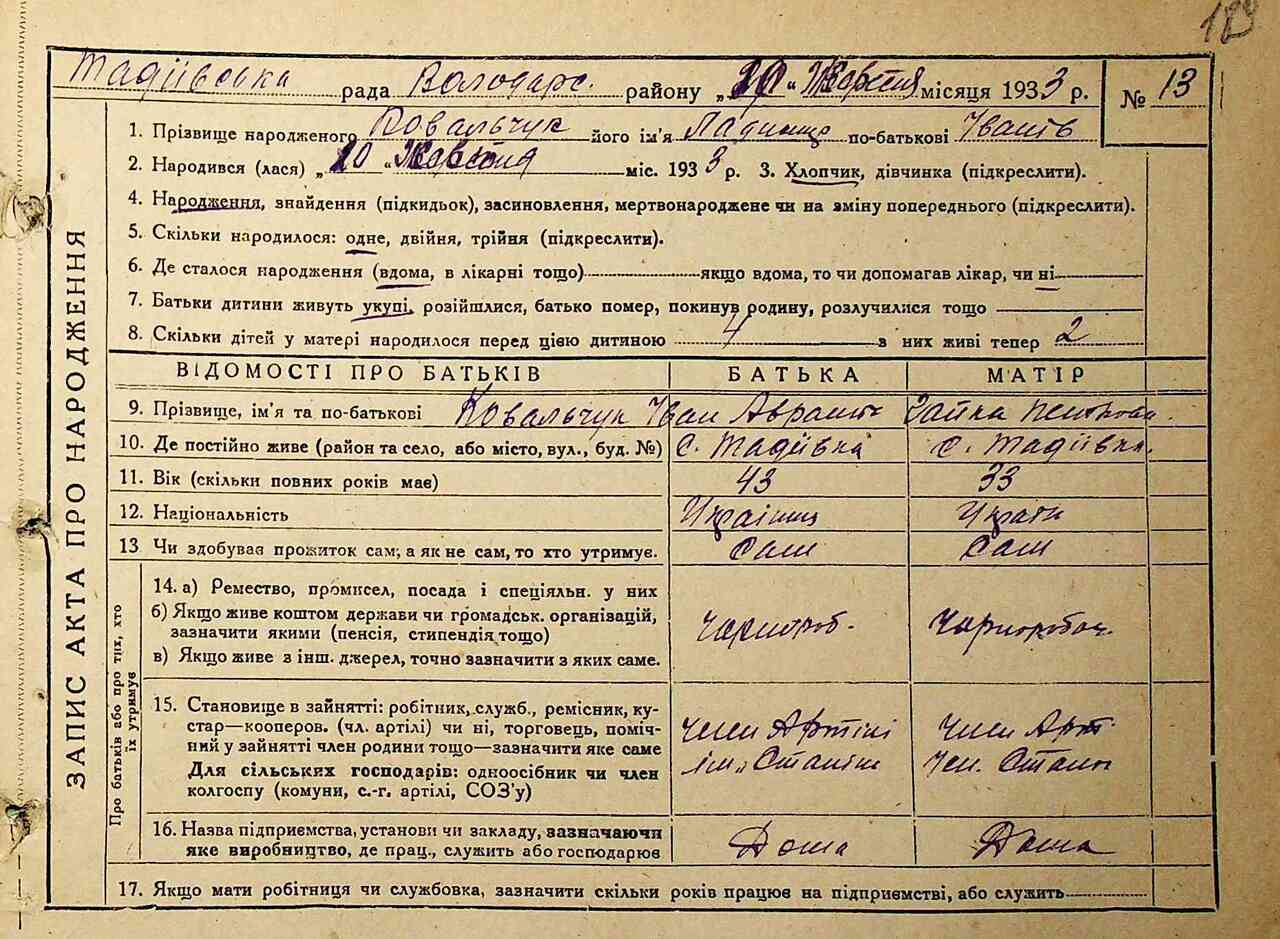 189
Тадіївська рада Володарс. району „20" Жовтня місяця 1933 р. № 13
ЗАПИС АКТА ПРО НАРОДЖЕННЯ
1. Прізвище народженого Ковальчук його ім'я по-батькові Іванів
2. Народився (лася) „10" Жовтня міс. 1933 р. 3. Хлопчик, дівчинка (підкреслити).
4. Народження, знайдення (підкидьок), засиновлення, мертвонароджене чи на зміну попереднього (підкреслити).
5. Скільки народилося: одне, двійня, трійня (підкреслити).
6. Де сталося народження (вдома, в лікарні тощо) якщо вдома, то чи допомагав лікар, чи ні
7. Батьки дитини живуть укупі, розійшлися, батько помер, покинув родину, розлучилися тощо
8. Скільки дітей у матері народилося перед цією дитиною 4 з них живі тепер 2
ВІДОМОСТІ ПРО БАТЬКІВ БАТЬКА МАТІР
9. Прізвище, ім'я та по-батькові Ковальчук Іван
10. Де постійно живе (район та село, або місто, вул., буд. №) с. Тадіївка с. Тадіївка.
11. Вік (скільки повних років має) 43 33
12. Національність Українц Украін
13 Чи здобував прожиток сам; а як не сам, то хто утримує. Сам Сам
Про батьків або про тих, хто їх утримує
14. а) Ремество, промисел, посада і спеціяльн. у них
б) Якщо живе коштом держави чи громадськ. організацій,
зазначити якими (пенсія, стипендія тощо) Чорнороб. Чорноробоч.
в) Якщо живе з інш. джерел, точно зазначити з яких саме.
15. Становище в зайнятті: робітник, служб., ремісник, ку-
стар—кооперов. (чл. артілі) чи ні, торговець, поміч- член Артілі член Арті
ний у зайнятті член родини тощо—зазначити яке саме
Для сільських господарів: одноосібник чи член ім. Сталін Сталін
колгоспу (комуни, с.-г. артілі, СОЗ'у)
16. Назва підприємства, установи чи закладу, зазначаючи
яке виробництво, де прац., служить або господарює Дома Дома
17. Якщо мати робітниця чи службовка, зазначити скільки років працює на підприємстві, або служить